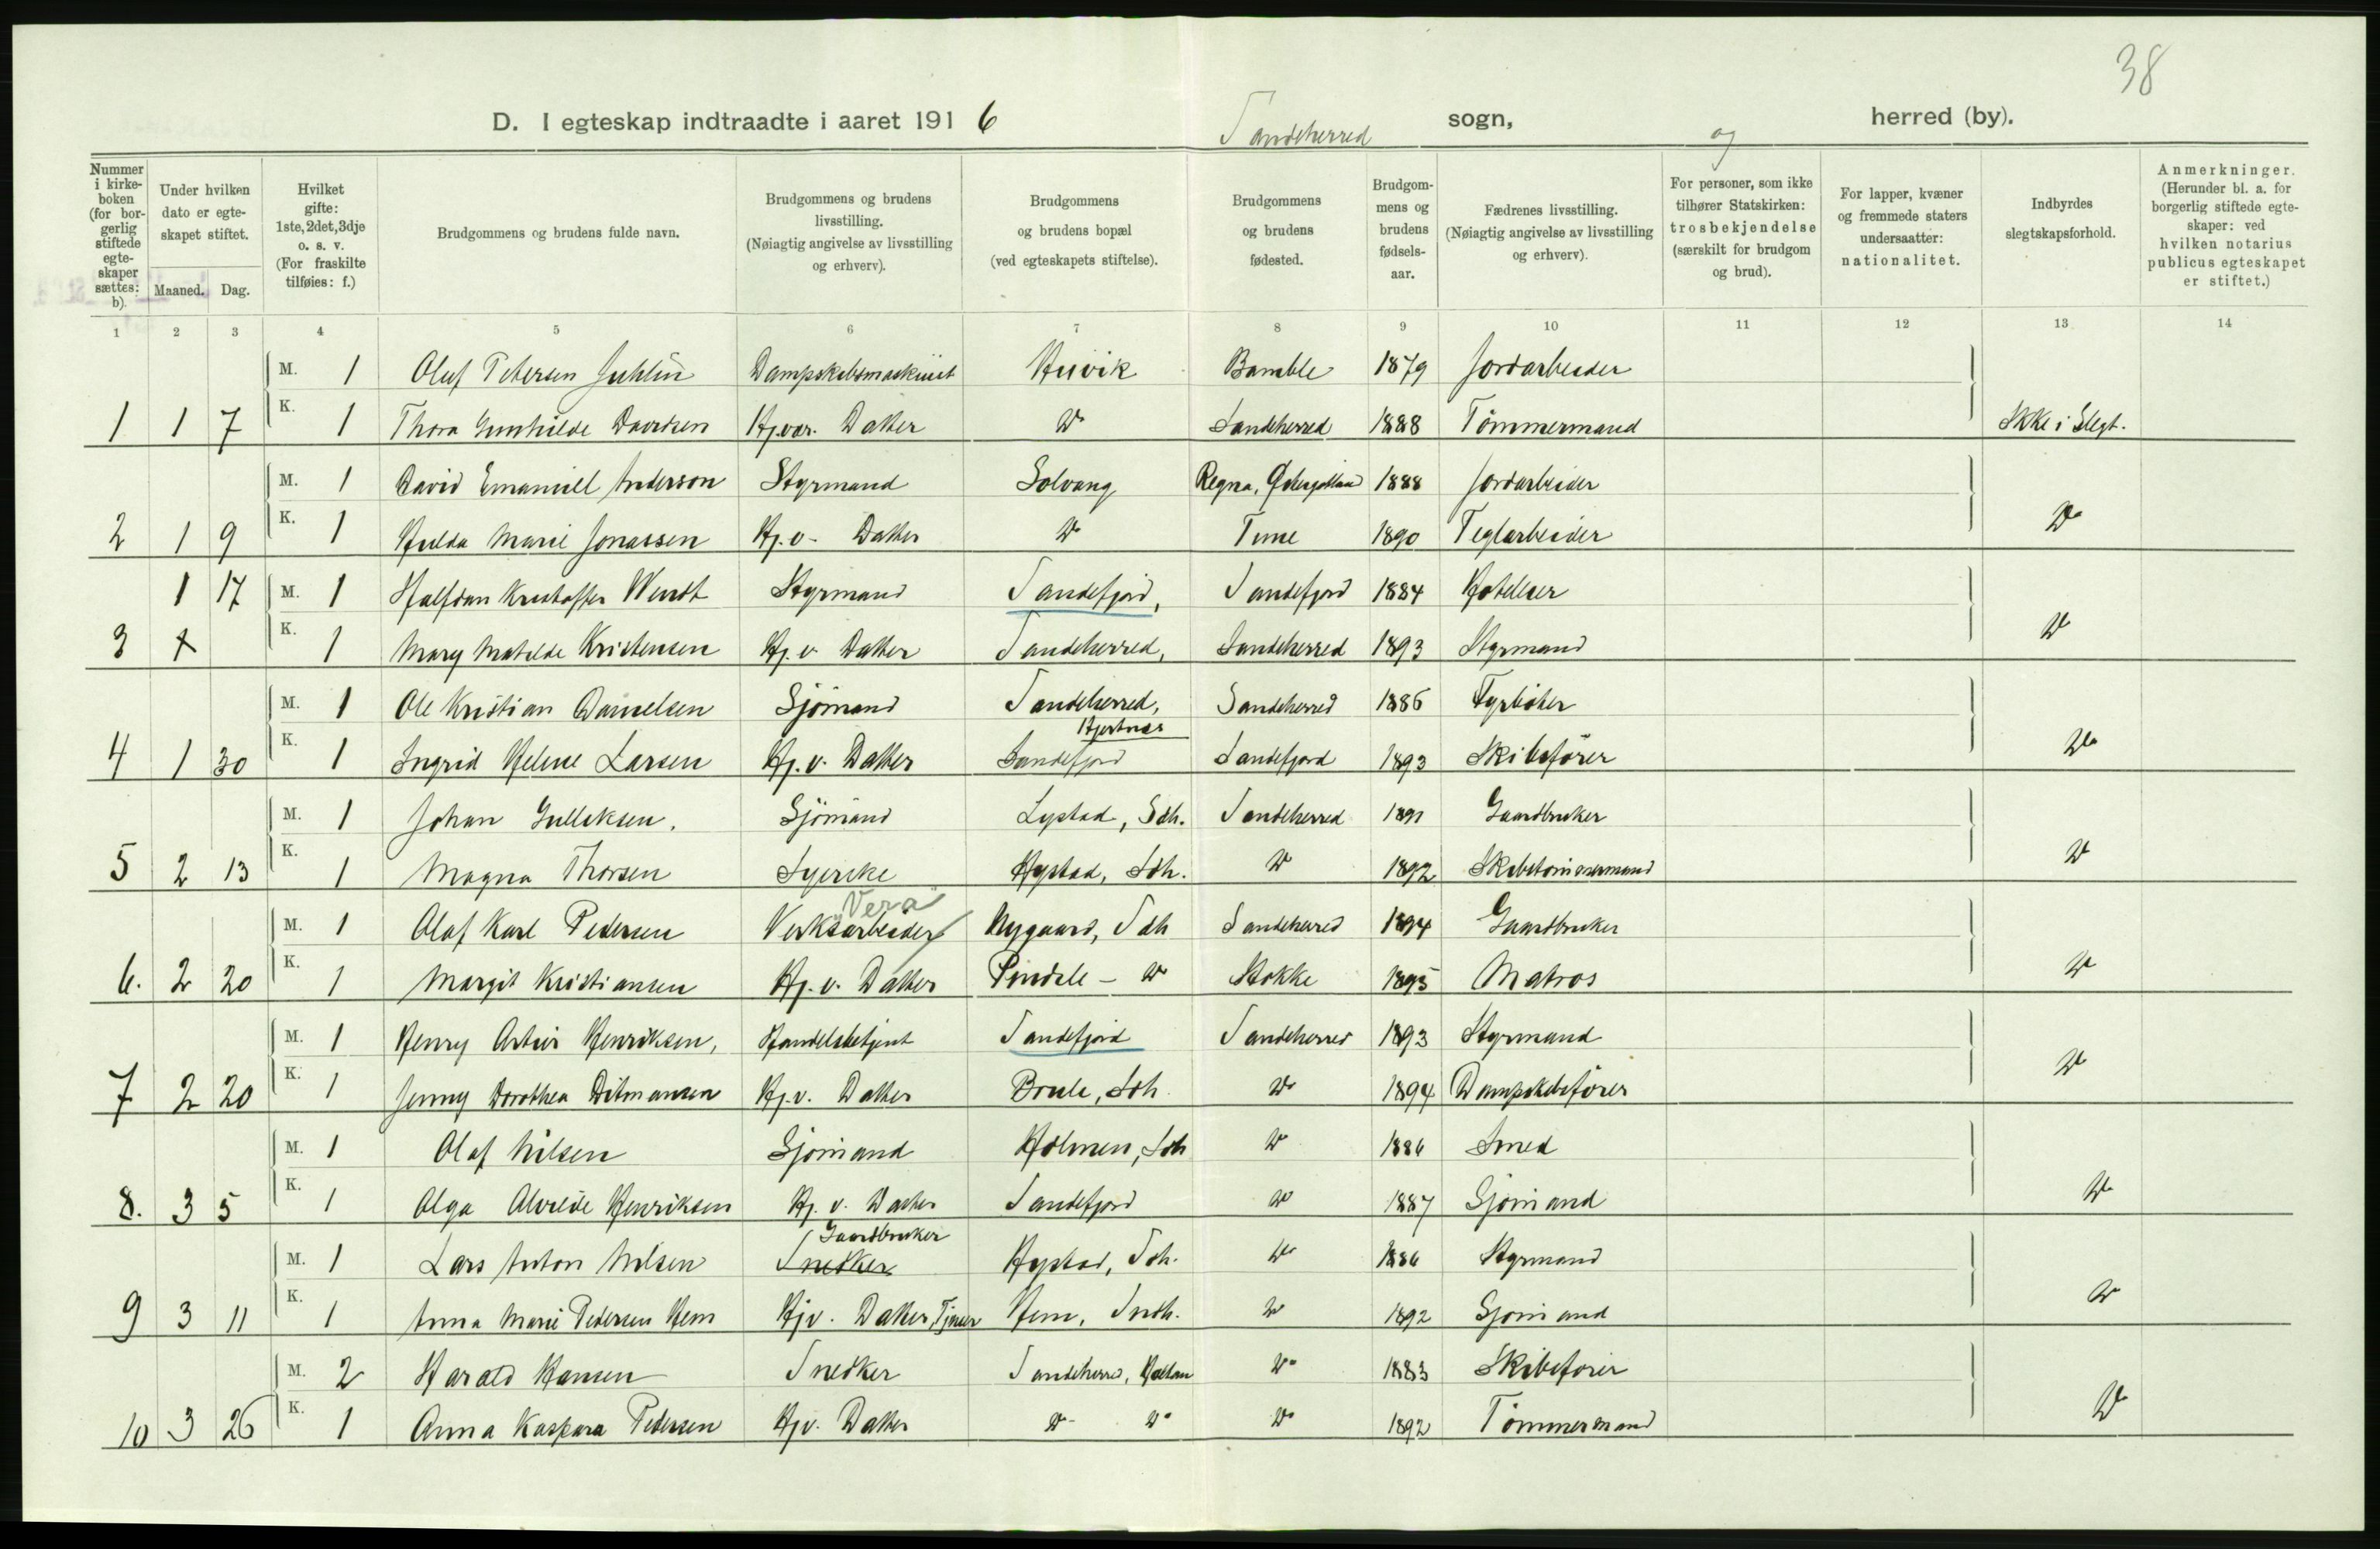 38
D. I egteskap indtraadte i aaret 1916 Sandeherred sogn, og herred (by).
Nummer i kirkeboken (for borgerlig stiftede egteskaper sættes: b).
Under hvilken dato er egteskapet stiftet.
Maaned. Dag.
Hvilket gifte: 1ste, 2det, 3dje o. s. v. (For fraskilte tilføies: f.)
Brudgommens og brudens fulde navn.
Brudgommens og brudens livsstilling. (Nøiagtig angivelse av livsstilling og erhverv).
Brudgommens og brudens bopæl (ved egteskapets stiftelse).
Brudgommens og brudens fødested.
Brudgommens og brudens fødselsaar.
Fædrenes livsstilling. (Nøiagtig angivelse av livsstilling og erhverv).
For personer, som ikke tilhører Statskirken: trosbekjendelse (særskilt for brudgom og brud).
For lapper, kvæner og fremmede staters undersaatter: nationalitet.
Indbyrdes slegtskapsforhold.
Anmerkninger. (Herunder bl. a. for borgerlig stiftede egteskaper: ved hvilken notarius publicus egteskapet er stiftet.)
1 2 3 4 5 6 7 8 9 10 11 12 13 14
M. 1 Oluf Petersen Juhlin Dampskibsmaskinist Husvik Bamble 1879 Jordarbeider
1 1 7 K. 1 Thora Gunhilde Davidsen Hj.vær. Datter Do Sandeherred 1888 Tømmermand Ikke i Slegt.
M. 1 David Emanuell Anderson Styrmand Solvang Regna, Østergötland 1888 Jordarbeider
2 1 9 K. 1 Hulda Marie Jonassen Hj. v. Datter Do Time 1890 Teglarbeider Do
1 17 M. 1 Halfdan Kristoffer Wendt Styrmand Sandefjord, Sandefjord 1884 Hotelleier
3 K. 1 Mary Mathilde Kristensen Hj. v. Datter Sandeherred, Sandeherred 1893 Styrmand Do
M. 1 Ole Kristian Danielsen Sjömand Sandeherred, Sandeherred 1886 Fyrböter
Hjertnes
4 1 30 K. 1 Ingrid Helene Larsen Hj. v. Datter Sandefjord Sandefjord 1893 Skibsfører Do
M. 1 Johan Gulleksen. Sjömand Lystad, Sdh. Sandeherred 1891 Gaardbruker
5 2 13 K. 1 Magna Thorsen Syerske Hystad, Sdh. Do 1892 Skibstömmermand Do
"Vera"
M. 1 Olaf Karl Pedersen Verksarbeider Nygaard, Sdh Sandeherred 1894 Gaardbruker
6. 2 20 K. 1 Margit Kristiansen Hj. v. Datter Pindsle - Do Stokke 1895 Matros Do
M. 1 Henry Artur Henriksen, Handelsbetjent Sandefjord Sandeherred 1893 Styrmand
7 2 20 K. 1 Jenny Dorothea Ditmansen Hj. v. Datter Breili, Sdh Do 1894 Dampskibsfører Do
M. 1 Olaf Nilsen Sjömand Holmen, Sdh Do 1886 Smed
8. 3 5 K. 1 Olga Alvilde Henriksen Hj. v. Datter Sandefjord Do 1887 Sjömand Do
Gaardbruker
M. 1 Lars Anton Nilsen Snedker Hystad, Sdh. Do 1886 Styrmand
9 3 11 K. 1 Anna Marie Pedersen Hem Hjv. Datter, Tjener Hem, Sndh. Do 1892 Sjömand Do
M. 2 Harald Hansen Snedker Sandeherred, Haslan Do 1883 Skibsfører
10 3 26 K. 1 Anna Kaspara Pedersen Hjv. Datter Do Do Do 1892 Tømmermand Do